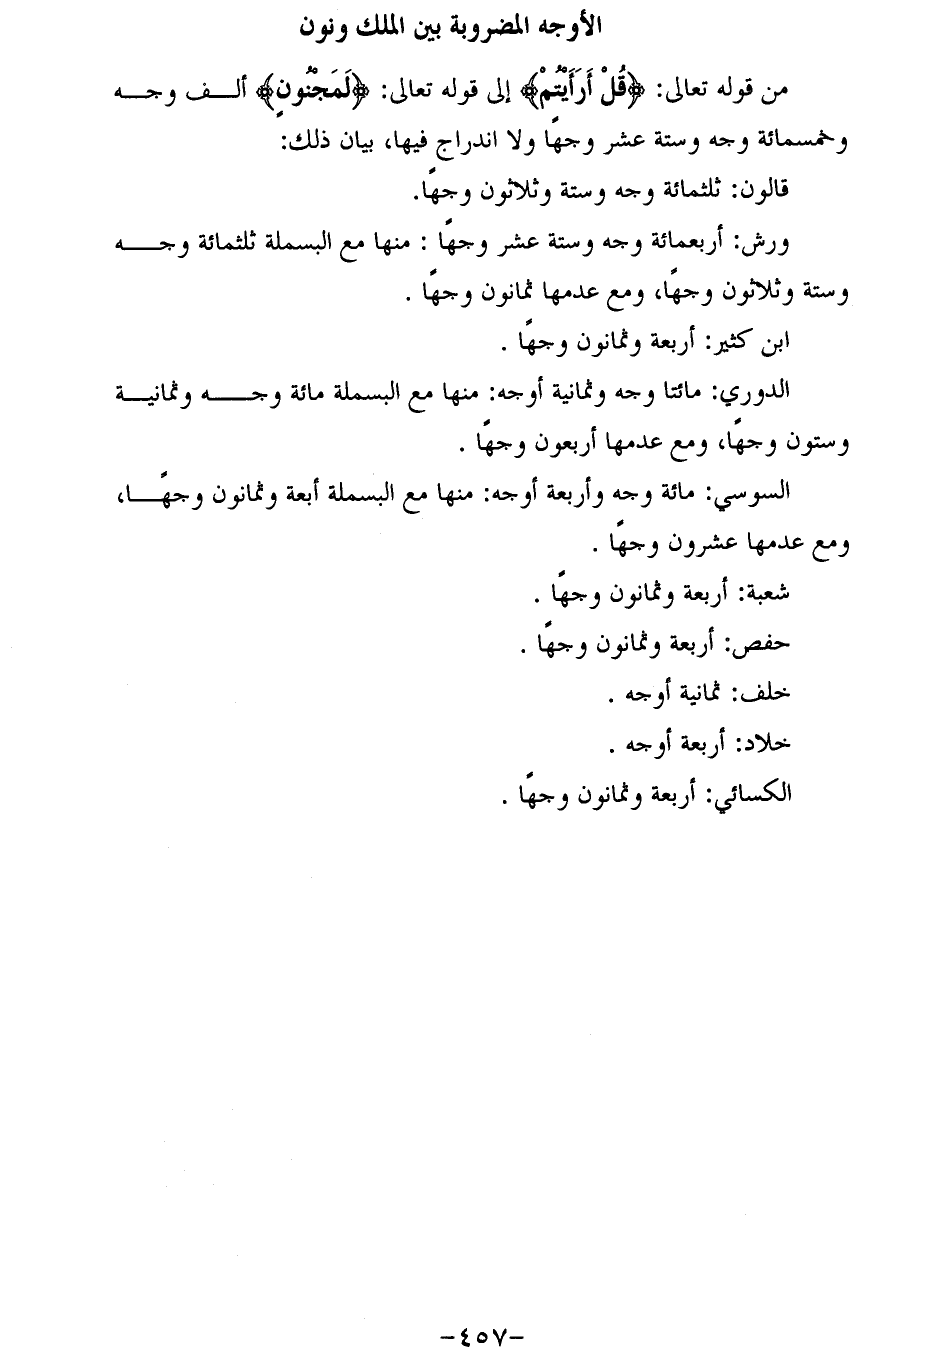 الأوجه المضروبة بين الملك ونون
من قوله تعالى: ﴿قُلْ أَرَأَيْتُمْ﴾ إلى قوله تعالى: ﴿لَمَجْنُونٍ﴾ ألف وجه
وخمسمائة وجه وستة عشر وجهًا ولا اندراج فيها، بيان ذلك:
قالون: ثلثمائة وجه وستة وثلاثون وجهًا.
ورش: أربعمائة وجه وستة عشر وجهًا : منها مع البسملة ثلثمائة وجه
وستة وثلاثون وجهًا، ومع عدمها ثمانون وجهًا .
ابن كثير: أربعة وثمانون وجهًا .
الدوري: مائتا وجه وثمانية أوجه: منها مع البسملة مائة وجه وثمانية
وستون وجهًا، ومع عدمها أربعون وجهًا .
السوسي: مائة وجه وأربعة أوجه: منها مع البسملة أبعة وثمانون وجهًا،
ومع عدمها عشرون وجهًا .
شعبة: أربعة وثمانون وجهًا .
حفص: أربعة وثمانون وجهًا .
خلف: ثمانية أوجه .
خلاد: أربعة أوجه .
الكسائي: أربعة وثمانون وجهًا .
-٤٥٧-